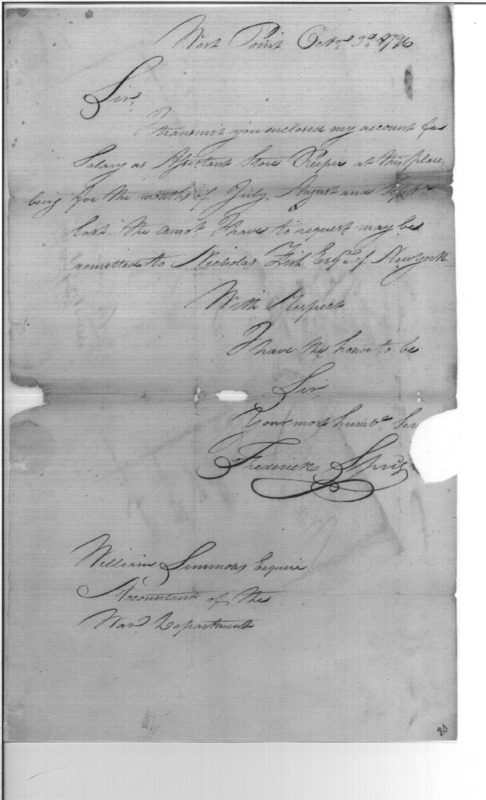 West Point Octr 3d 1796
Sir,
I transmit you enclosed my account for
Salary as Assistant Store Keeper at this place,
being for the months of July, August and Septr
last the amot I have to request may be
remitted to Nicholas Fish Esqr of New York.
With Respect
I have the honor to be
Sir
Your most humble Ser
Frederick
William Simmons Esquire
Accountant of the
War Department
20